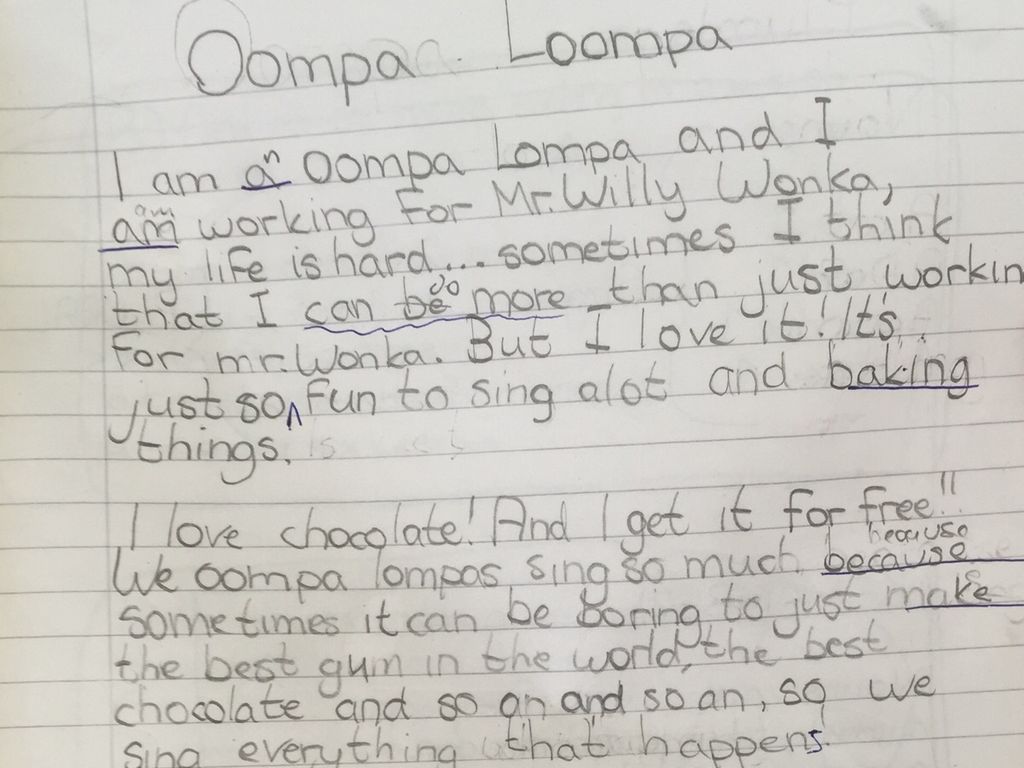 Oompa Loompa
I am an Oompa Lompa and I
am working for Mr. Willy Wonka,
my life is hard... sometimes I think
that I can be more than just workin
for mr. Wonka. But I love it! It's
just so fun to sing alot and baking
things.
I love chocolate! And I get it for free!!
because
We oompa lompas sing so much because
sometimes it can be boring to just make
the best gum in the world, the best
chocolate and so an and so an, so we
sing everything that happens.